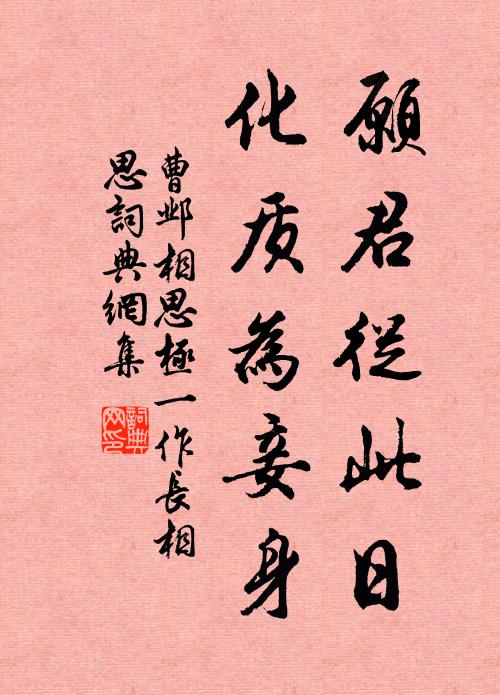 願君從此日
化质為妾身
曹邺相思極一作長相
思詞典網集
詞典
网印